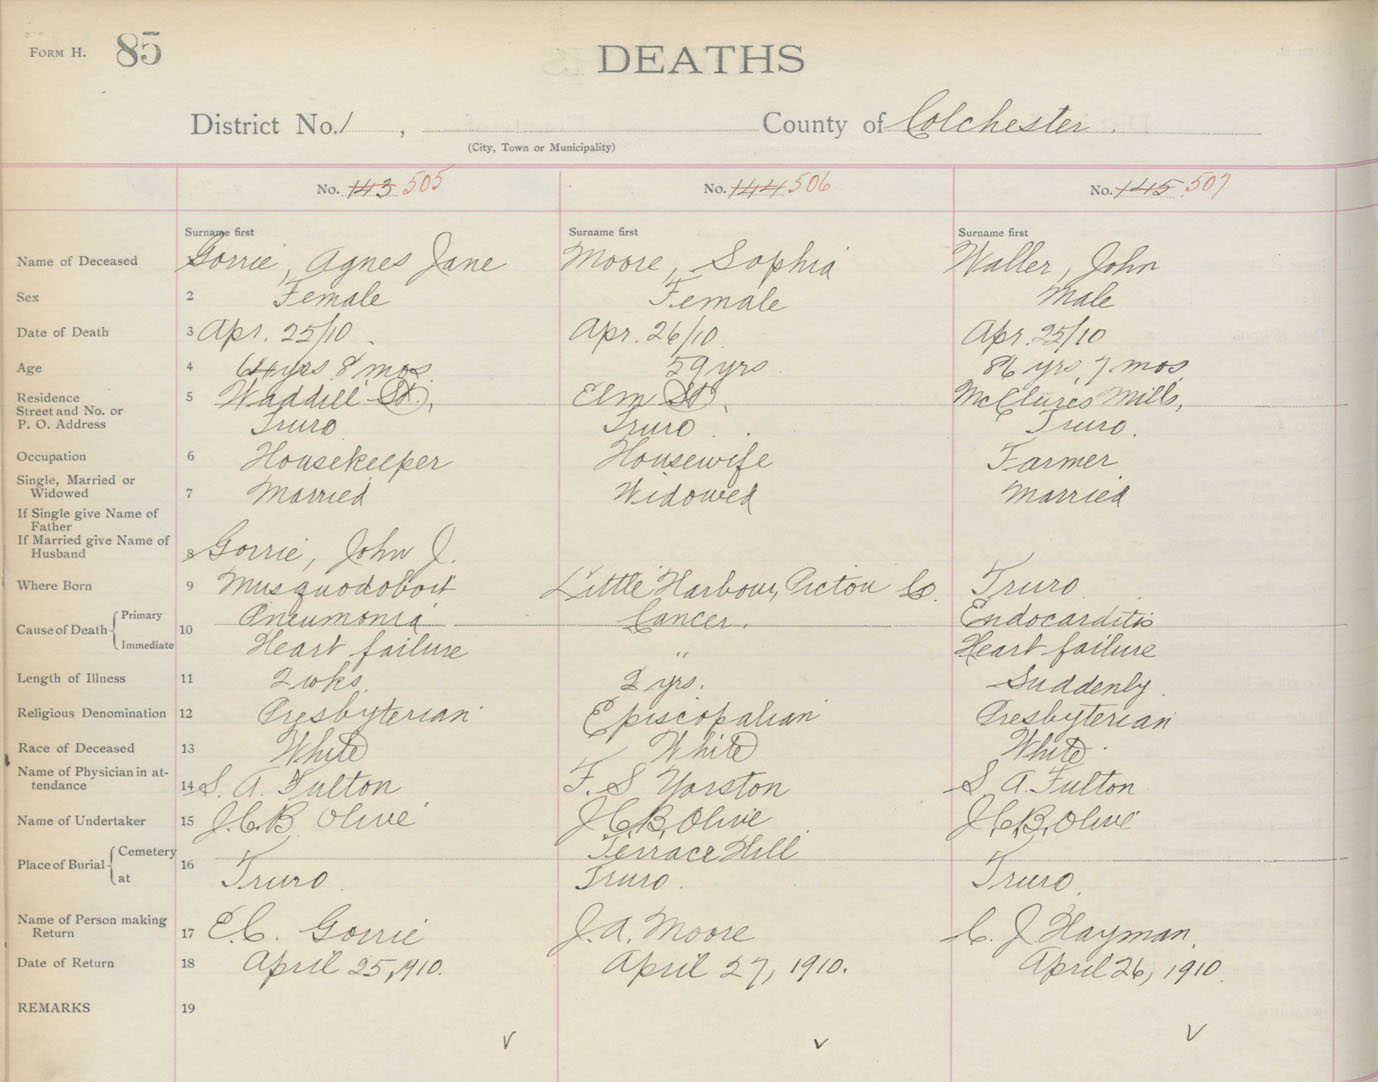 FORM H. 85
DEATHS
District No. 1 , County of Colchester.
(City, Town or Municipality)
No. 143 505 No. 144 506 No. 145 507
Surname first Surname first Surname first
Name of Deceased Gorrie, Agnes Jane Moore, Sophia Waller, John
Sex 2 Female Female Male
Date of Death 3 Apr. 25/10 Apr. 26/10 Apr. 25/10
Age 4 64 yrs 8 mos 59 yrs 86 yrs 7 mos
Residence 5 Waddell St., Elm St., McClure's Mills,
Street and No. or
P. O. Address Truro Truro Truro.
Occupation 6 Housekeeper Housewife Farmer
Single, Married or
Widowed 7 Married Widowed Married
If Single give Name of
Father
If Married give Name of
Husband 8 Gorrie, John J.
Where Born 9 Musquodoboit Little Harbour, Pictou Co. Truro
Cause of Death Primary 10 Pneumonia Cancer. Endocarditis
Immediate Heart failure " Heart failure
Length of Illness 11 2 wks. 2 yrs. Suddenly.
Religious Denomination 12 Presbyterian Episcopalian Presbyterian
Race of Deceased 13 White White White
Name of Physician in at-
tendance 14 S. A. Fulton F. S Yorston S. A. Fulton
Name of Undertaker 15 J.C.B. Olive J.C.B. Olive J.C.B. Olive
Place of Burial Cemetery 16 Terrace Hill
at Truro Truro. Truro
Name of Person making
Return 17 E.C. Gorrie J.A. Moore C. J. Hayman.
Date of Return 18 April 25, 1910. April 27, 1910. April 26, 1910.
REMARKS 19